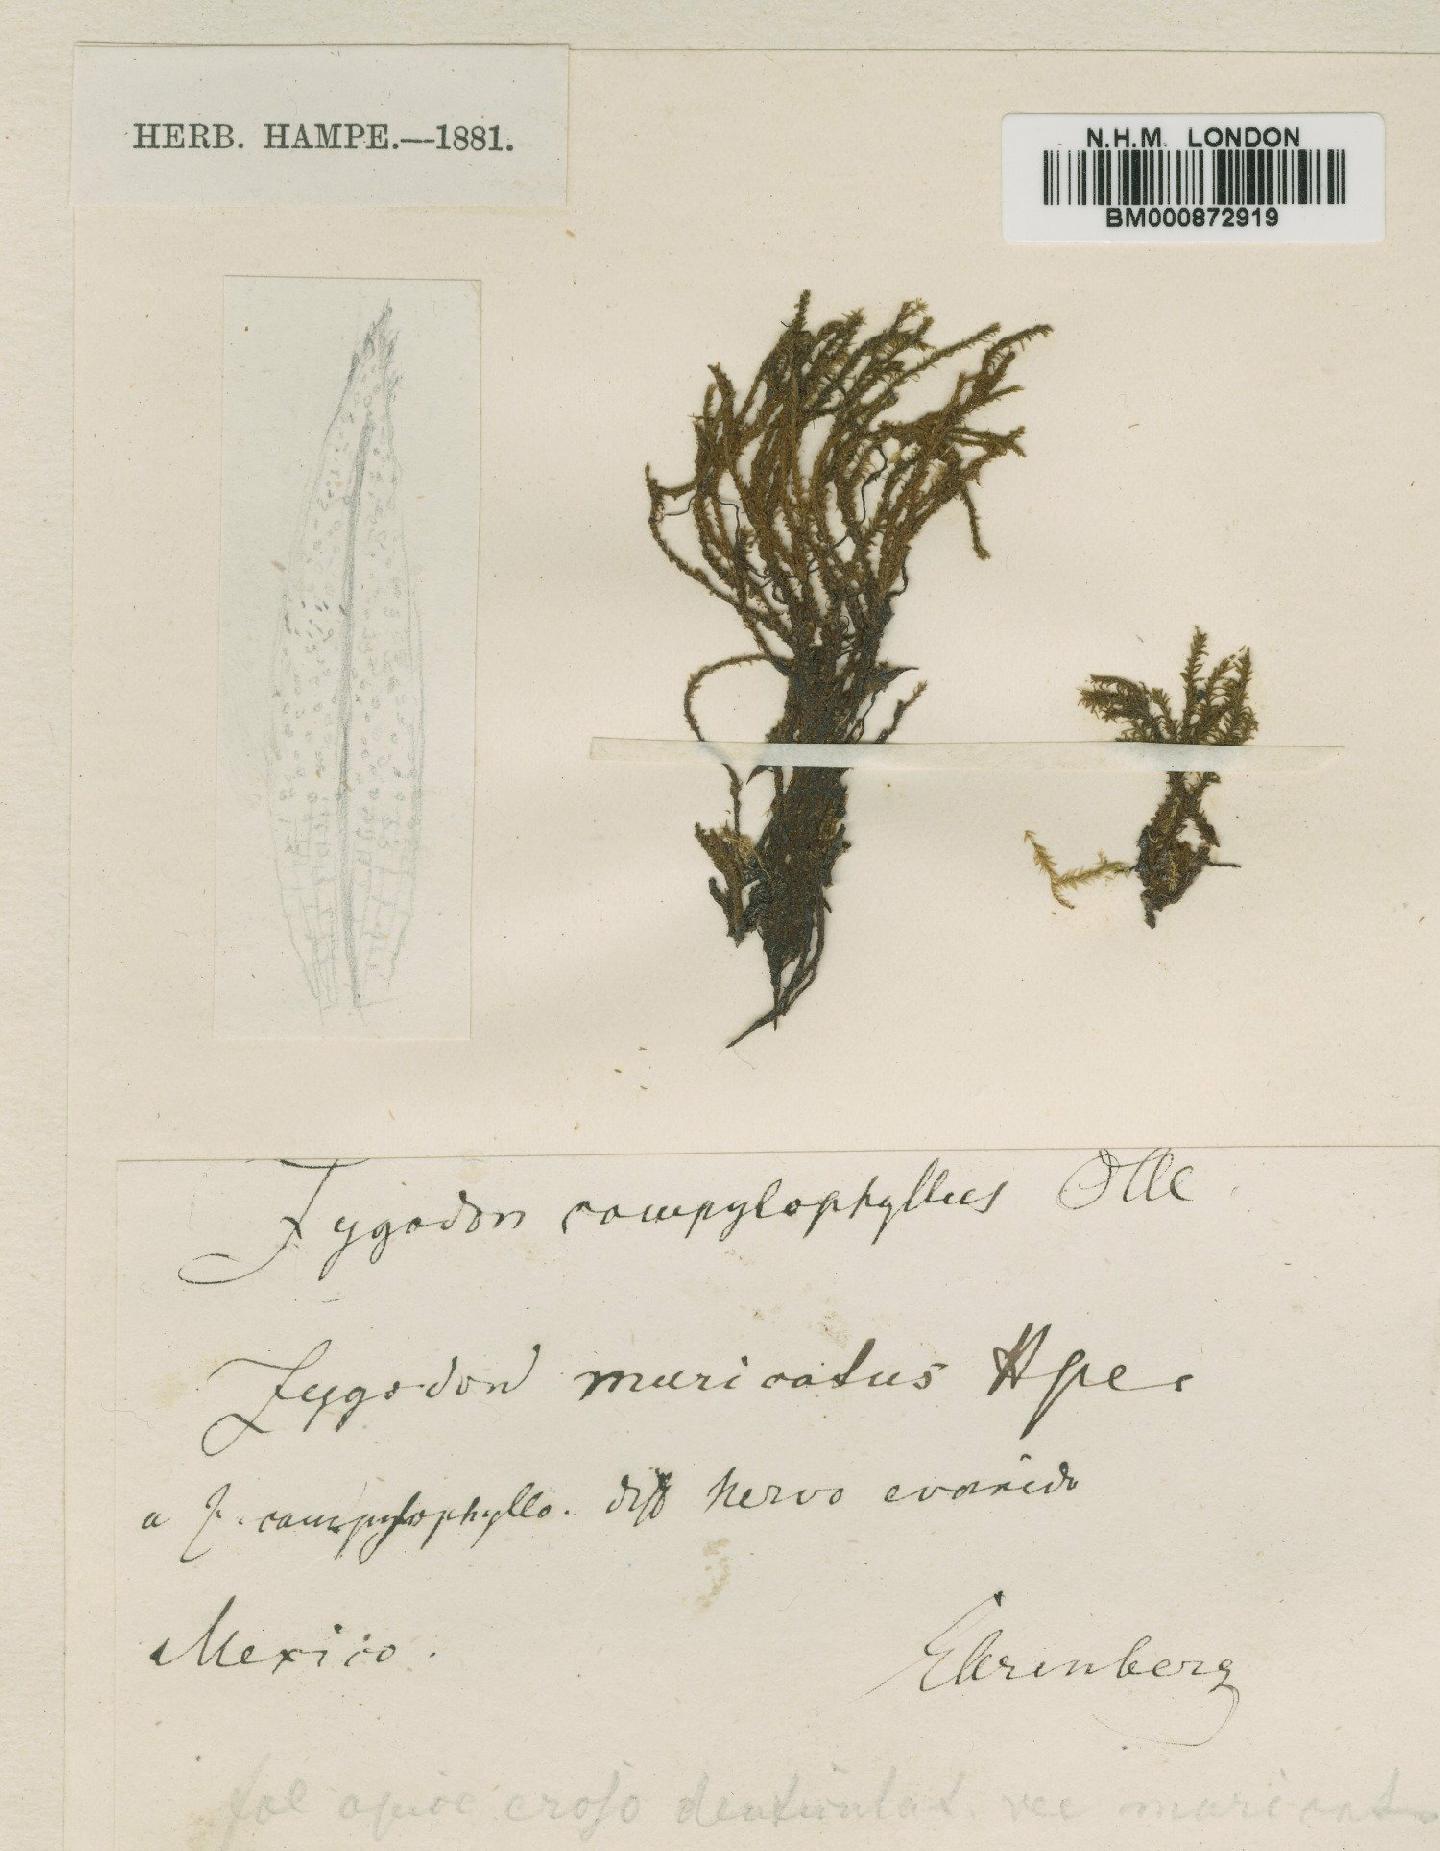 HERB. HAMPE.—1881.
N.H.M. LONDON
BM000872919
Zygodon campylophyllus
Zygodon muricatus Hpe.
a Z. campylophyllo. diff nervo evanido
Mexico.
Ehrenberg
fol apice eroso denticulat. nec muricato